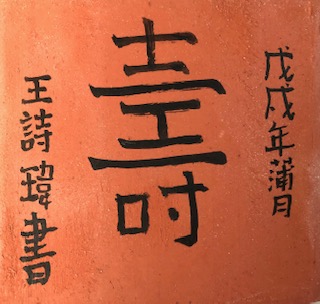 戊戌年蒲月
壽
王詩瑋書